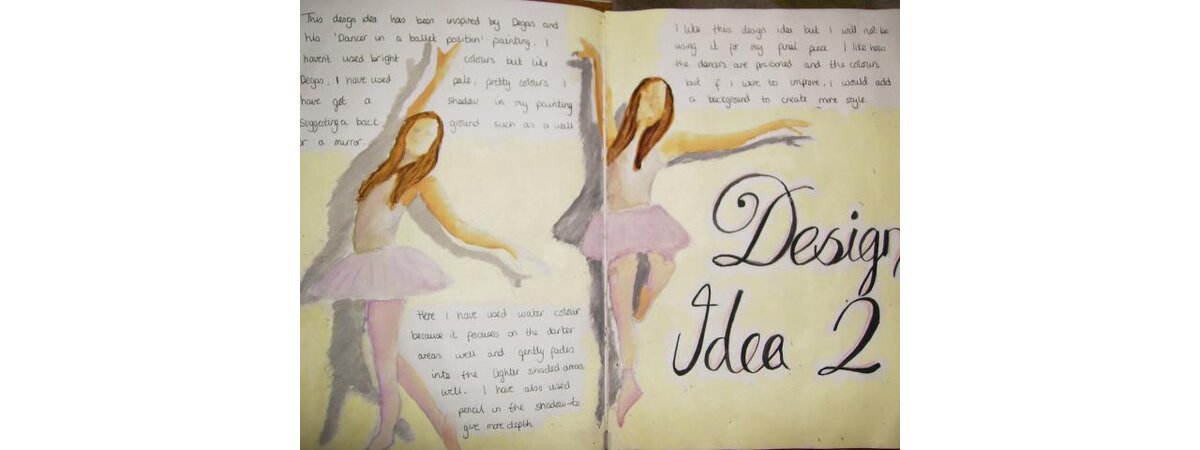 This design idea has been inspired by Degas and
his 'Dancer in a ballet position' painting. I
haven't used bright colours but like
Degas, I have used pale, pretty colours. I
have got a shadow in my painting
suggesting a back ground such as a wall
or a mirror.
Here I have used water colour
because it focuses on the darker
areas well and gently fades
into the lighter shaded areas
well. I have also used
pencil in the shadow to
give more depth
I like this design idea but I will not be
using it for my final piece. I like how
the dancers are positioned and the colours
but if I were to improve, I would add
a background to create more style.
Design
Idea 2